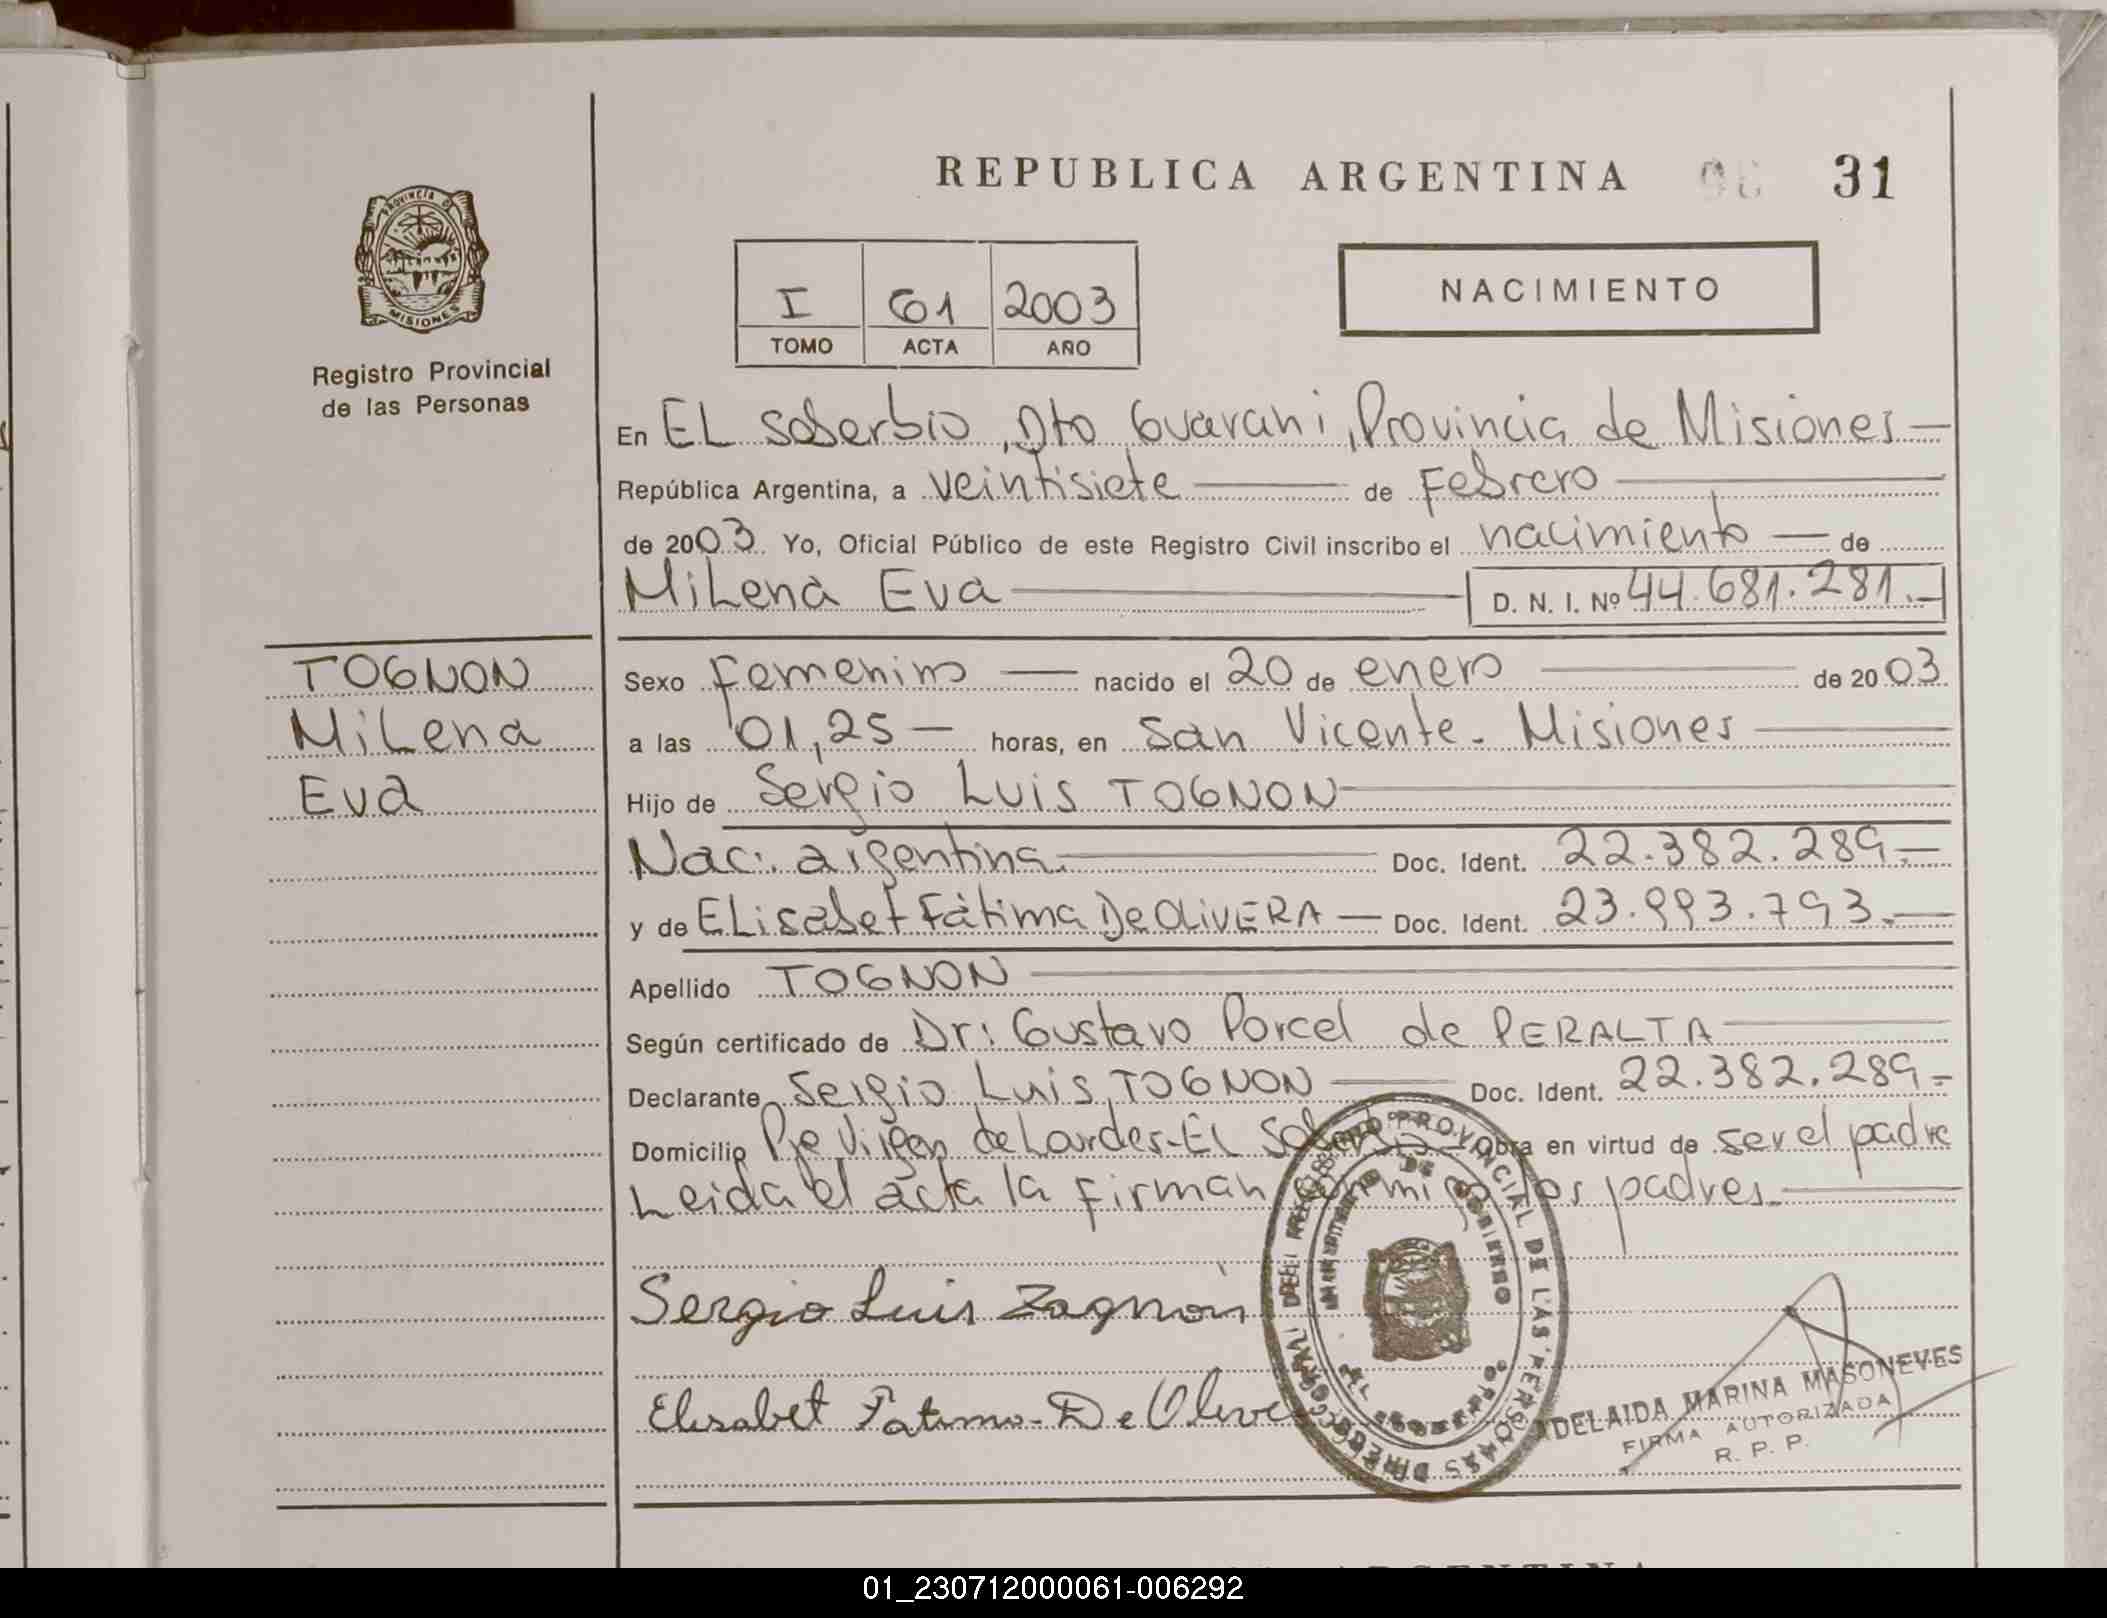 REPUBLICA ARGENTINA 31
PROVINCIA DE
MISIONES
Registro Provincial
de las Personas
I 61 2003
TOMO ACTA AÑO
NACIMIENTO
En EL Soberbio, Dto Guarani, Provincia de Misiones
República Argentina, a veintisiete de Febrero
de 2003. Yo, Oficial Público de este Registro Civil inscribo el nacimiento de
MiLena Eva D. N. I. Nº 44.681.281.-
TOGNON
MiLena
Eva
Sexo Femenino nacido el 20 de enero de 2003
a las 01,25 horas, en San Vicente - Misiones
Hijo de Sergio Luis TOGNON
Nac: argentina Doc. Ident. 22.382.289.-
y de ELisabet Fátima De OLIVERA Doc. Ident. 23.993.793.-
Apellido TOGNON
Según certificado de Dr: Gustavo Porcel de PERALTA
Declarante Sergio Luis TOGNON Doc. Ident. 22.382.289.-
Domicilio Pje Virgen de Lourdes-EL Soberbio - Obra en virtud de ser el padre
Leida el acta la firman conmigo los padres.
Sergio Luis Zognon
Elisabet Fatima De Olivera
DIRECCION GENERAL DEL REGISTRO PROVINCIAL DE LAS PERSONAS
MINISTERIO DE GOBIERNO
EL SOBERBIO
ADELAIDA MARINA MASONEVES
FIRMA AUTORIZADA
R. P. P.
01_230712000061-006292